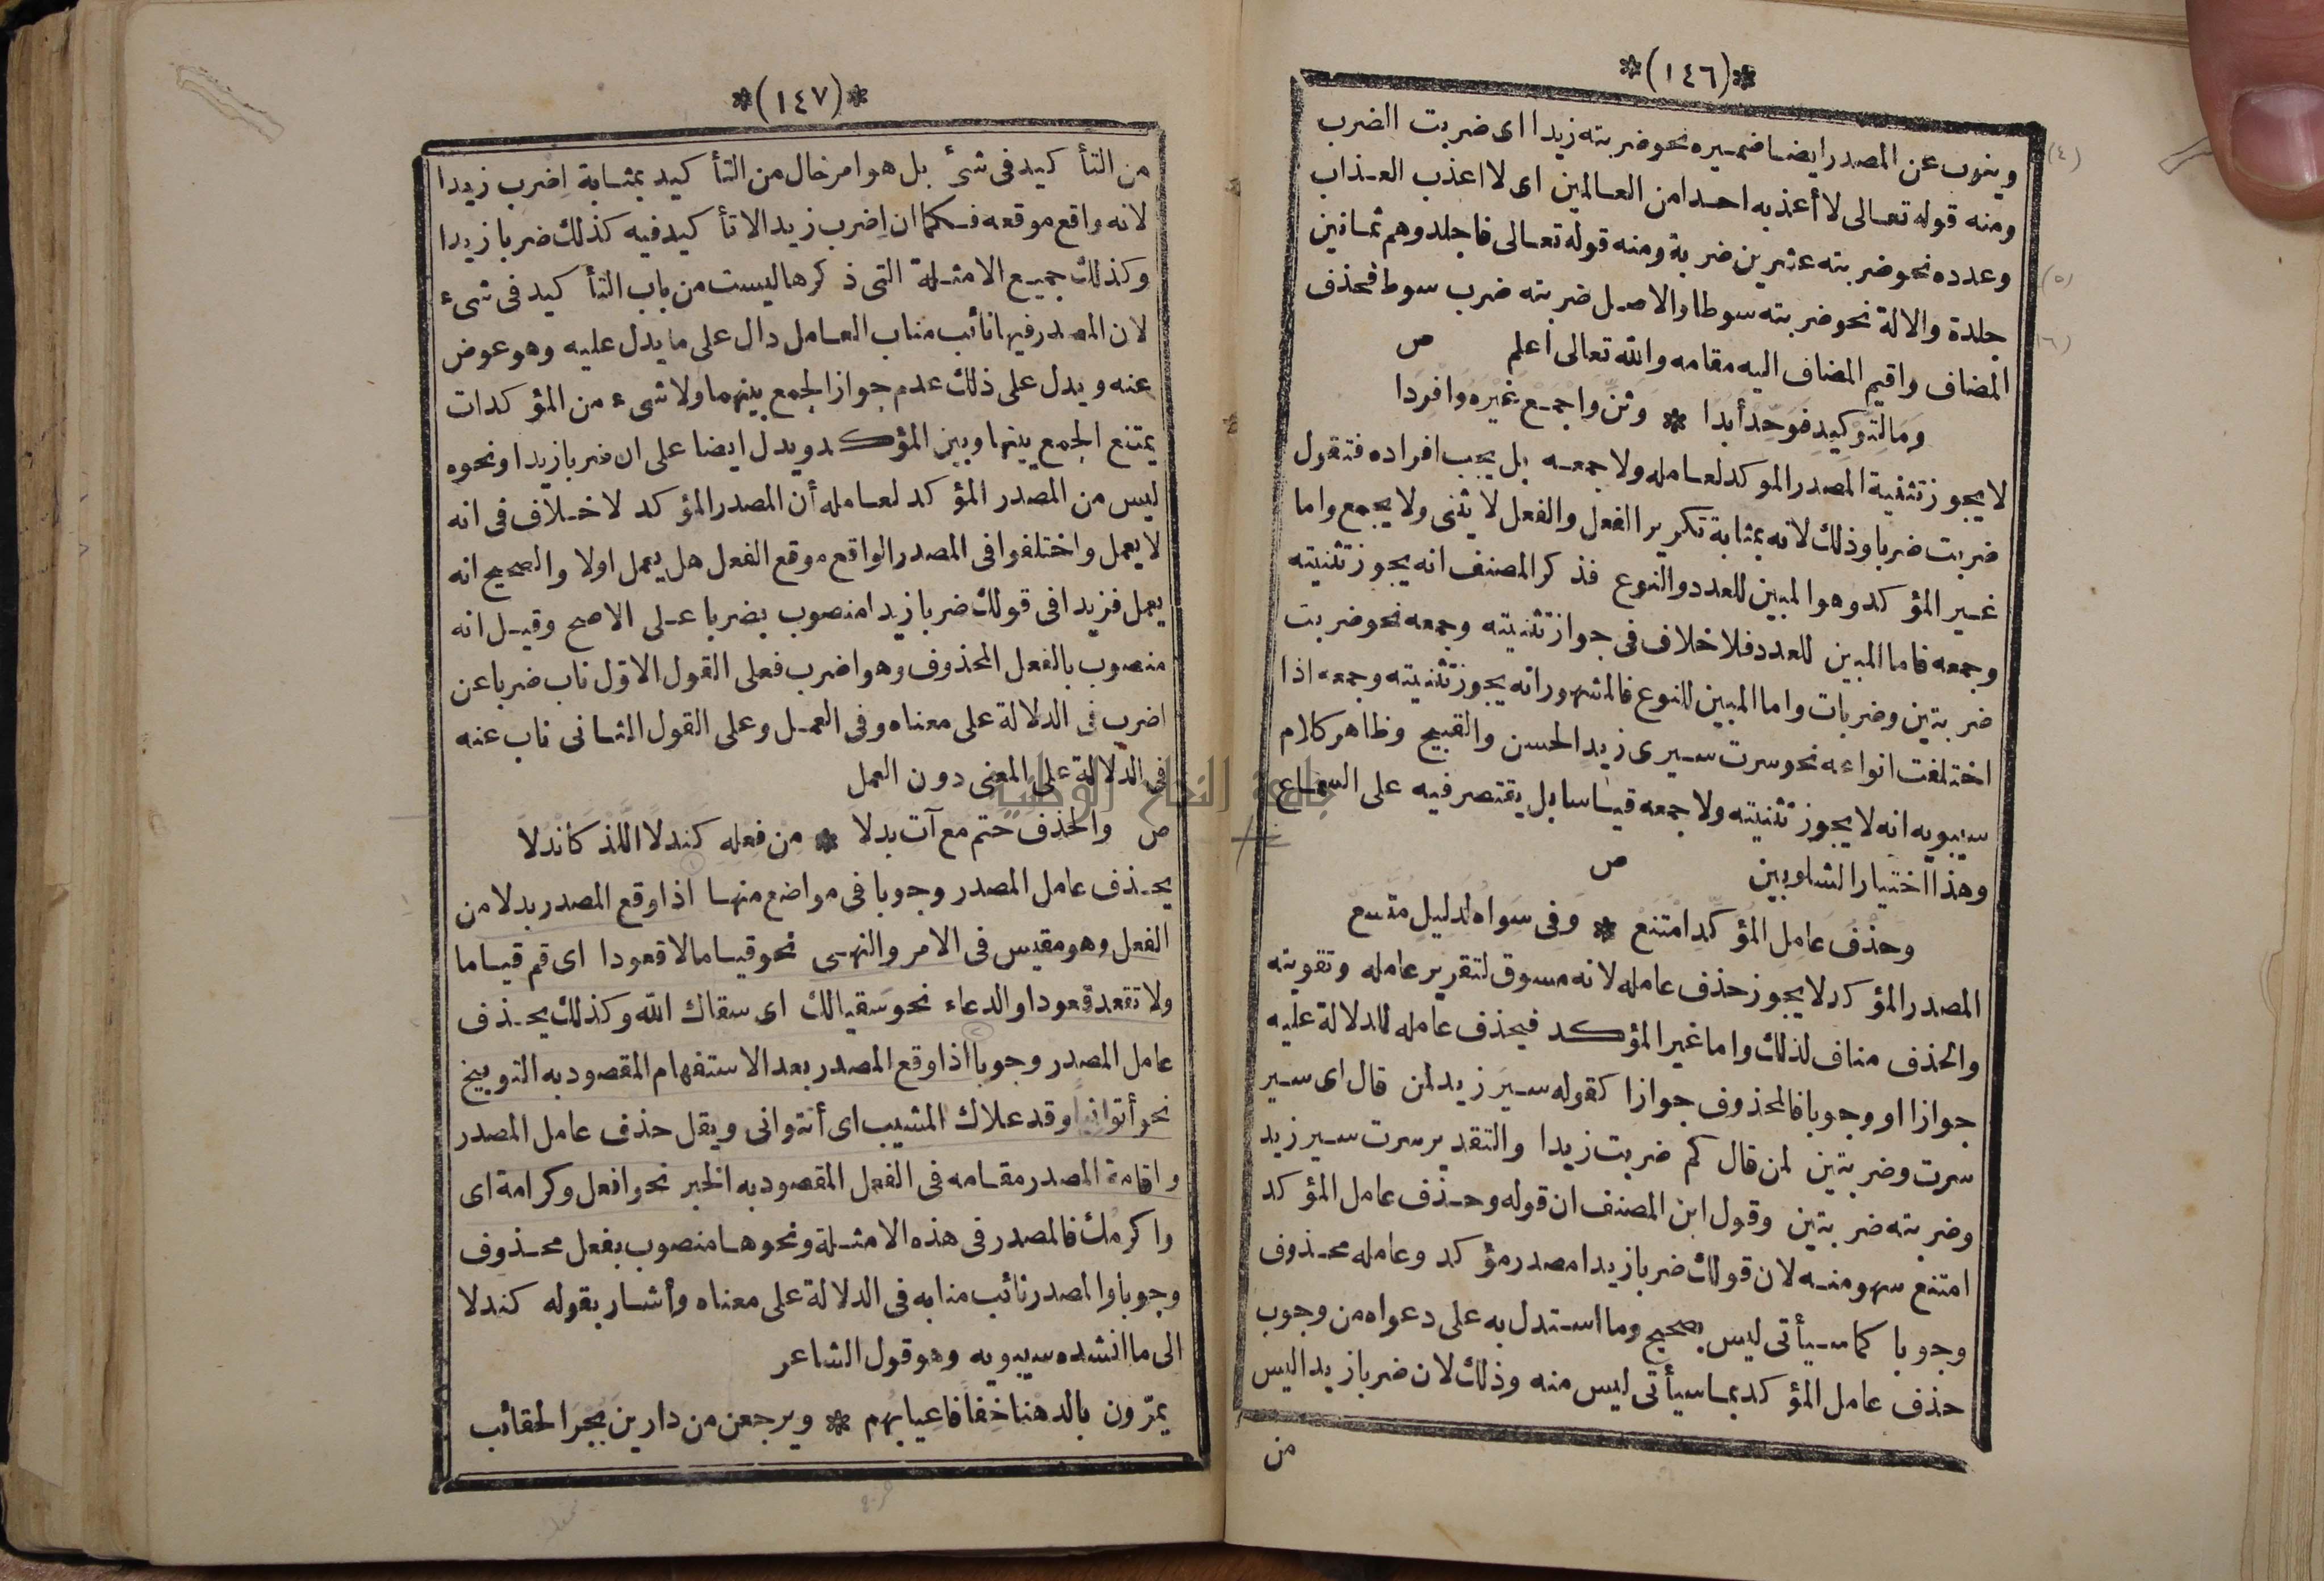 *(١٤٦)*
وينوب عن المصدر ايضا ضميره نحو ضربته زيدا اى ضربت الضرب
ومنه قوله تعالى لا أعذبه احدا من العالمين اى لا اعذب العذاب
وعدده نحو ضربته عشرين ضربة ومنه قوله تعالى فاجلدوهم ثمانين
جلدة والالة نحو ضربته سوطا والاصل ضربته ضرب سوط فحذف
المضاف واقيم المضاف اليه مقامه والله تعالى اعلم ص
وَمَا لِتَوكِيدٍ فَوَحِّد أبَدَا * وَثَنِّ وَاجمَع غَيرَه وَافرِدَا
لا يجوز تثنية المصدر الموكد لعامله ولا جمعه بل يجب افراده فتقول
ضربت ضربا وذلك لانه بمثابة تكرير الفعل والفعل لا يثنى ولا يجمع واما
غير المؤكد وهو المبين للعدد والنوع فذكر المصنف انه يجوز تثنيته
وجمعه فاما المبين للعدد فلا خلاف فى جواز تثنيته وجمعه نحو ضربت
ضربتين وضربات واما المبين للنوع فالمشهور انه يجوز تثنيته وجمعه اذا
اختلفت انواعه نحو سرت سيرى زيد الحسن والقبيح وظاهر كلام
سيبويه انه لا يجوز تثنيته ولا جمعه قياسا بل يقتصر فيه على السماع
وهذا اختيار الشلوبين ص
وحذفُ عَامِلِ المُؤكِّدِ امتَنَع * وَفِى سَواه لدَلِيلٍ متّسع
المصدر المؤكد لا يجوز حذف عامله لانه مسوق لتقرير عامله وتقويته
والحذف مناف لذلك واما غير المؤكد فيحذف عامله للدلالة عليه
جوازا او وجوبا فالمحذوف جوازا كقوله سيرَ زيد لمن قال اى سير
سرت وضربتين لمن قال كم ضربت زيدا والتقدير سرت سير زيد
وضربته ضربتين وقول ابن المصنف ان قوله وحذف عامل المؤكد
امتنع سهو منه لان قولك ضربا زيدا مصدر مؤكد وعامله محذوف
وجوبا كما سيأتى ليس بصحيح وما استدل به على دعواه من وجوب
حذف عامل المؤكد بما سيأتى ليس منه وذلك لان ضربا زيدا ليس
من
*(١٤٧)*
من التأكيد فى شئ بل هو امر خال من التأكيد بمثابة اِضرب زيدا
لانه واقع موقعه فكما ان اِضرب زيدا لا تأكيد فيه كذلك ضربا زيدا
وكذلك جميع الامثلة التى ذكرها ليست من باب التأكيد فى شىء
لان المصدر فيها نائب مناب العامل دال على ما يدل عليه وهو عوض
عنه ويدل على ذلك عدم جواز الجمع بينهما ولا شىء من المؤكدات
يمتنع الجمع بينها وبين المؤكد ويدل ايضا على ان ضربا زيدا ونحوه
ليس من المصدر المؤكد لعامله أن المصدر المؤكد لا خلاف فى انه
لا يعمل واختلفوا فى المصدر الواقع موقع الفعل هل يعمل اولا والصحيح انه
يعمل فزيدا فى قولك ضربا زيدا منصوب بضربا على الاصح وقيل انه
منصوب بالفعل المحذوف وهو اضرب فعلى القول الاوّل ناب ضربا عن
اضرب فى الدلالة على معناه وفى العمل وعلى القول الثانى ناب عنه
فى الدلالة على المعنى دون العمل
ص والحذف حتم مع آت بدلا * مِن فعله كندلاً اللّذ كَاندلاَ
يحذف عامل المصدر وجوبا فى مواضع منها اذا وقع المصدر بدلا من
الفعل وهو مقيس فى الامر والنهى نحو قياما لا قعودا اى قم قياما
ولا تقعد قعودا والدعاء نحو سَقيا لك اى سقاك الله وكذلك يحذف
عامل المصدر وجوبا اذا وقع المصدر بعد الاستفهام المقصود به التوبيخ
نحو أتوانيا وقد علاك المشيب اى أتتوانى ويقل حذف عامل المصدر
واقامة المصدر مقامه فى الفعل المقصود به الخبر نحو افعل وكرامة اى
واكرمُك فالمصدر فى هذه الامثلة ونحوها منصوب بفعل محذوف
وجوبا والمصدر نائب منابه فى الدلالة على معناه وأشار بقوله كندلا
الى ما انشده سيبويه وهو قول الشاعر
يمرّون بالدهنا خِفَافا عِيابُهم * ويرجعن من دارين بُجرَ الحقائب
جامعة النجاح الوطنية